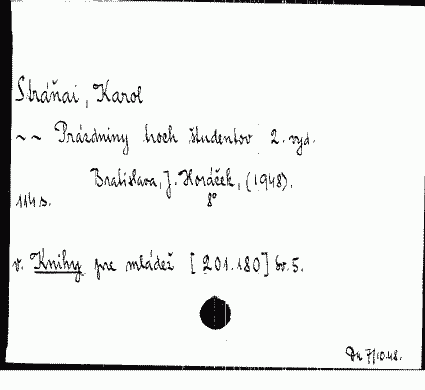 Stráňai, Karol
~~ Prázdniny troch študentov 2. vyd.
Bratislava, J. Horáček, (1948).
114 s. 8°
v. Knihy pre mládež [201.180] sv. 5.
7/10.48.